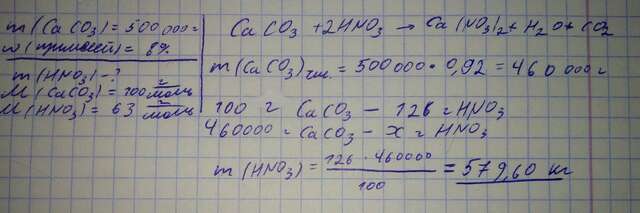 m(CaCO3) = 500 000 г
ω(примесей) = 8%
m(HNO3) - ?
M(CaCO3) = 100 г/моль
M(HNO3) = 63 г/моль
CaCO3 + 2HNO3 → Ca(NO3)2 + H2O + CO2
m(CaCO3)чист. = 500000 · 0,92 = 460 000 г
100 г CaCO3 – 126 г HNO3
460000 г CaCO3 – x г HNO3
m(HNO3) = 126 · 460000 / 100 = 579,60 кг